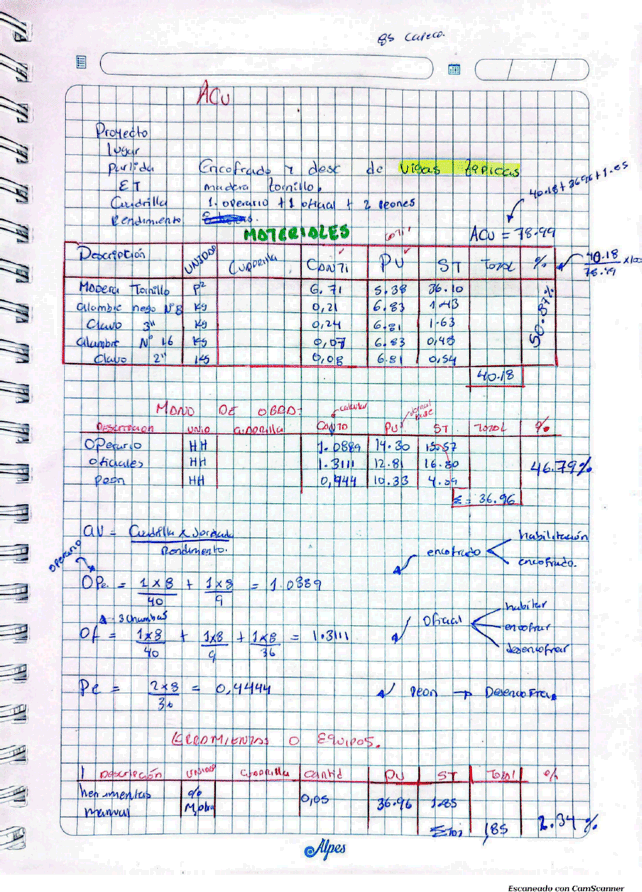 ACU
Proyecto
lugar
Partida Encofrado y desc de vigas típicas
ET madera tornillo.
Cuadrilla 1. operario + 1 oficial + 2 peones
Rendimiento
40.18 + 36.96 + 1.85
ACU = 78.99
MATERIALES
Descripción UNIDAD CUADRILLA CANTI PU ST Total %
40.18 / 78.99 x100
Madera Tornillo P² 6.71 5.38 36.10
Alambre nego N°8 Kg 0,21 6.83 1.43
Clavo 3" Kg 0,24 6.81 1.63
Alambre N° 16 Kg 0,07 6.83 0,48
Clavo 2" Kg 0,08 6.81 0,54
50.87%
40.18
MANO DE OBRA: calcular
Descripcion UNID CUADRILLA CANTD PU ST TOTAL %
Operario HH 1.0889 14.30 15.57
Oficiales HH 1.3111 12.81 16.80
peon HH 0,444 10.33 4.59
46.79%
Σ = 36.96
CU = Cuadrilla x Jornada / Rendimiento.
operario
OPe = 1x8/40 + 1x8/9 = 1.0889
encofrado habilitación
encofrado.
3 chambas
Of = 1x8/40 + 1x8/9 + 1x8/36 = 1.3111
Oficial habilitar
encofrar
desencofrar
Pe = 2x8/36 = 0,4444
Peon → Desencofrar
HERRAMIENTAS O EQUIPOS.
Descripción UNIDAD Cuadrilla Cantid PU ST Total %
herramientas manual % M,obra 0,05 36.96 1.85
1,85 2.34%
Alpes
Escaneado con CamScanner